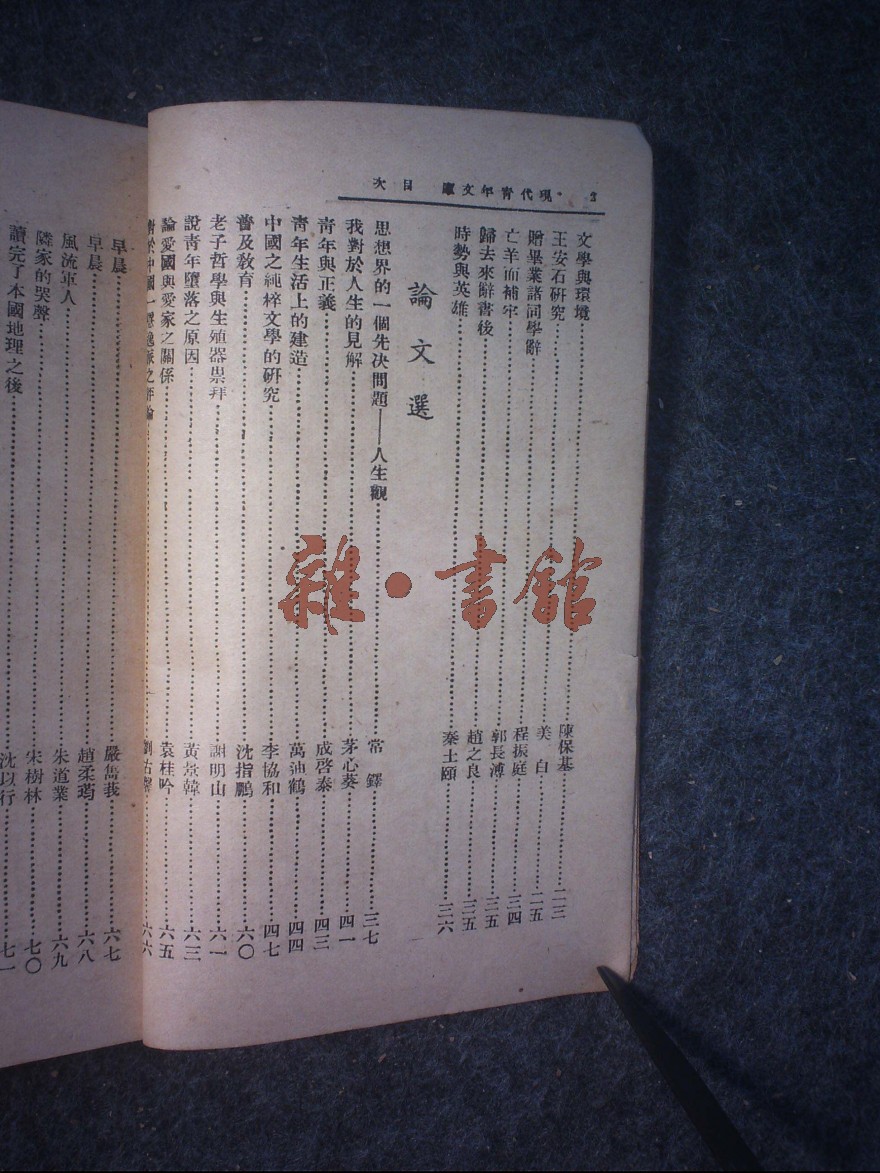 現代青年文庫 目次 2
文學與環境 陳保基 二三
王安石研究 美白 二五
贈畢業諸同學辭 程振庭 三四
亡羊而補牢 郭長溥 三五
歸去來辭書後 趙之良 三五
時勢與英雄 秦士頤 三六
論文選
思想界的一個先決問題——人生觀 常鐸 三七
我對於人生的見解 茅心葵 四一
青年與正義 成啓泰 四三
靑年生活上的建造 萬迪鶴 四四
中國之純粹文學的研究 李協和 四七
普及敎育 沈指鵬 六〇
老子哲學與生殖器崇拜 謝明山 六一
說靑年墮落之原因 黃景韓 六三
論愛國與愛家之關係 袁桂吟 六五
對於中國一 之評論 劉右 六六
早晨 嚴雋莪 六七
早晨 趙柔 六八
風流軍人 朱道業 六九
隣家的哭聲 宋樹林 七〇
讀完了本國地理之後 沈以行 七一
雜·書館